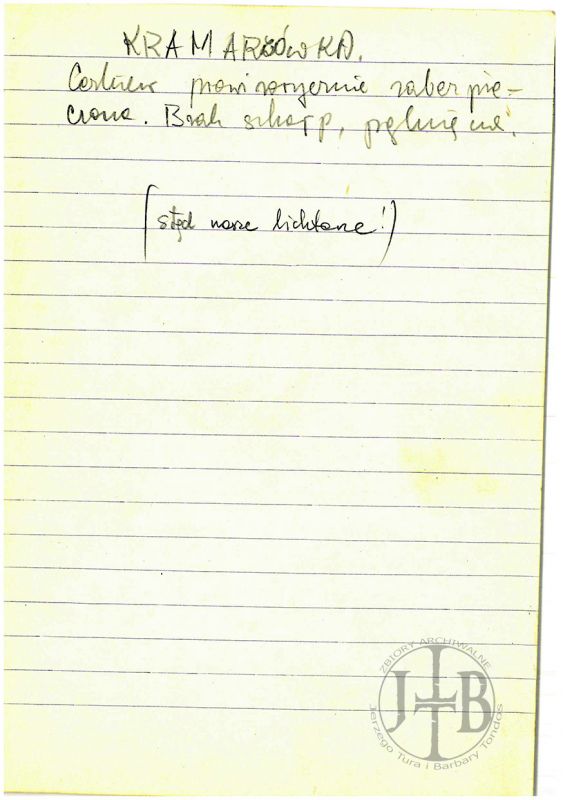 KRAMARZÓWKA.
Cerkiew prowizorycznie zabezpie-
czona. Brak szkarp, pęknięcia.
(stąd nasze lichtarze!)
ZBIORY ARCHIWALNE
JTB
Jerzego Tura i Barbary Tondos